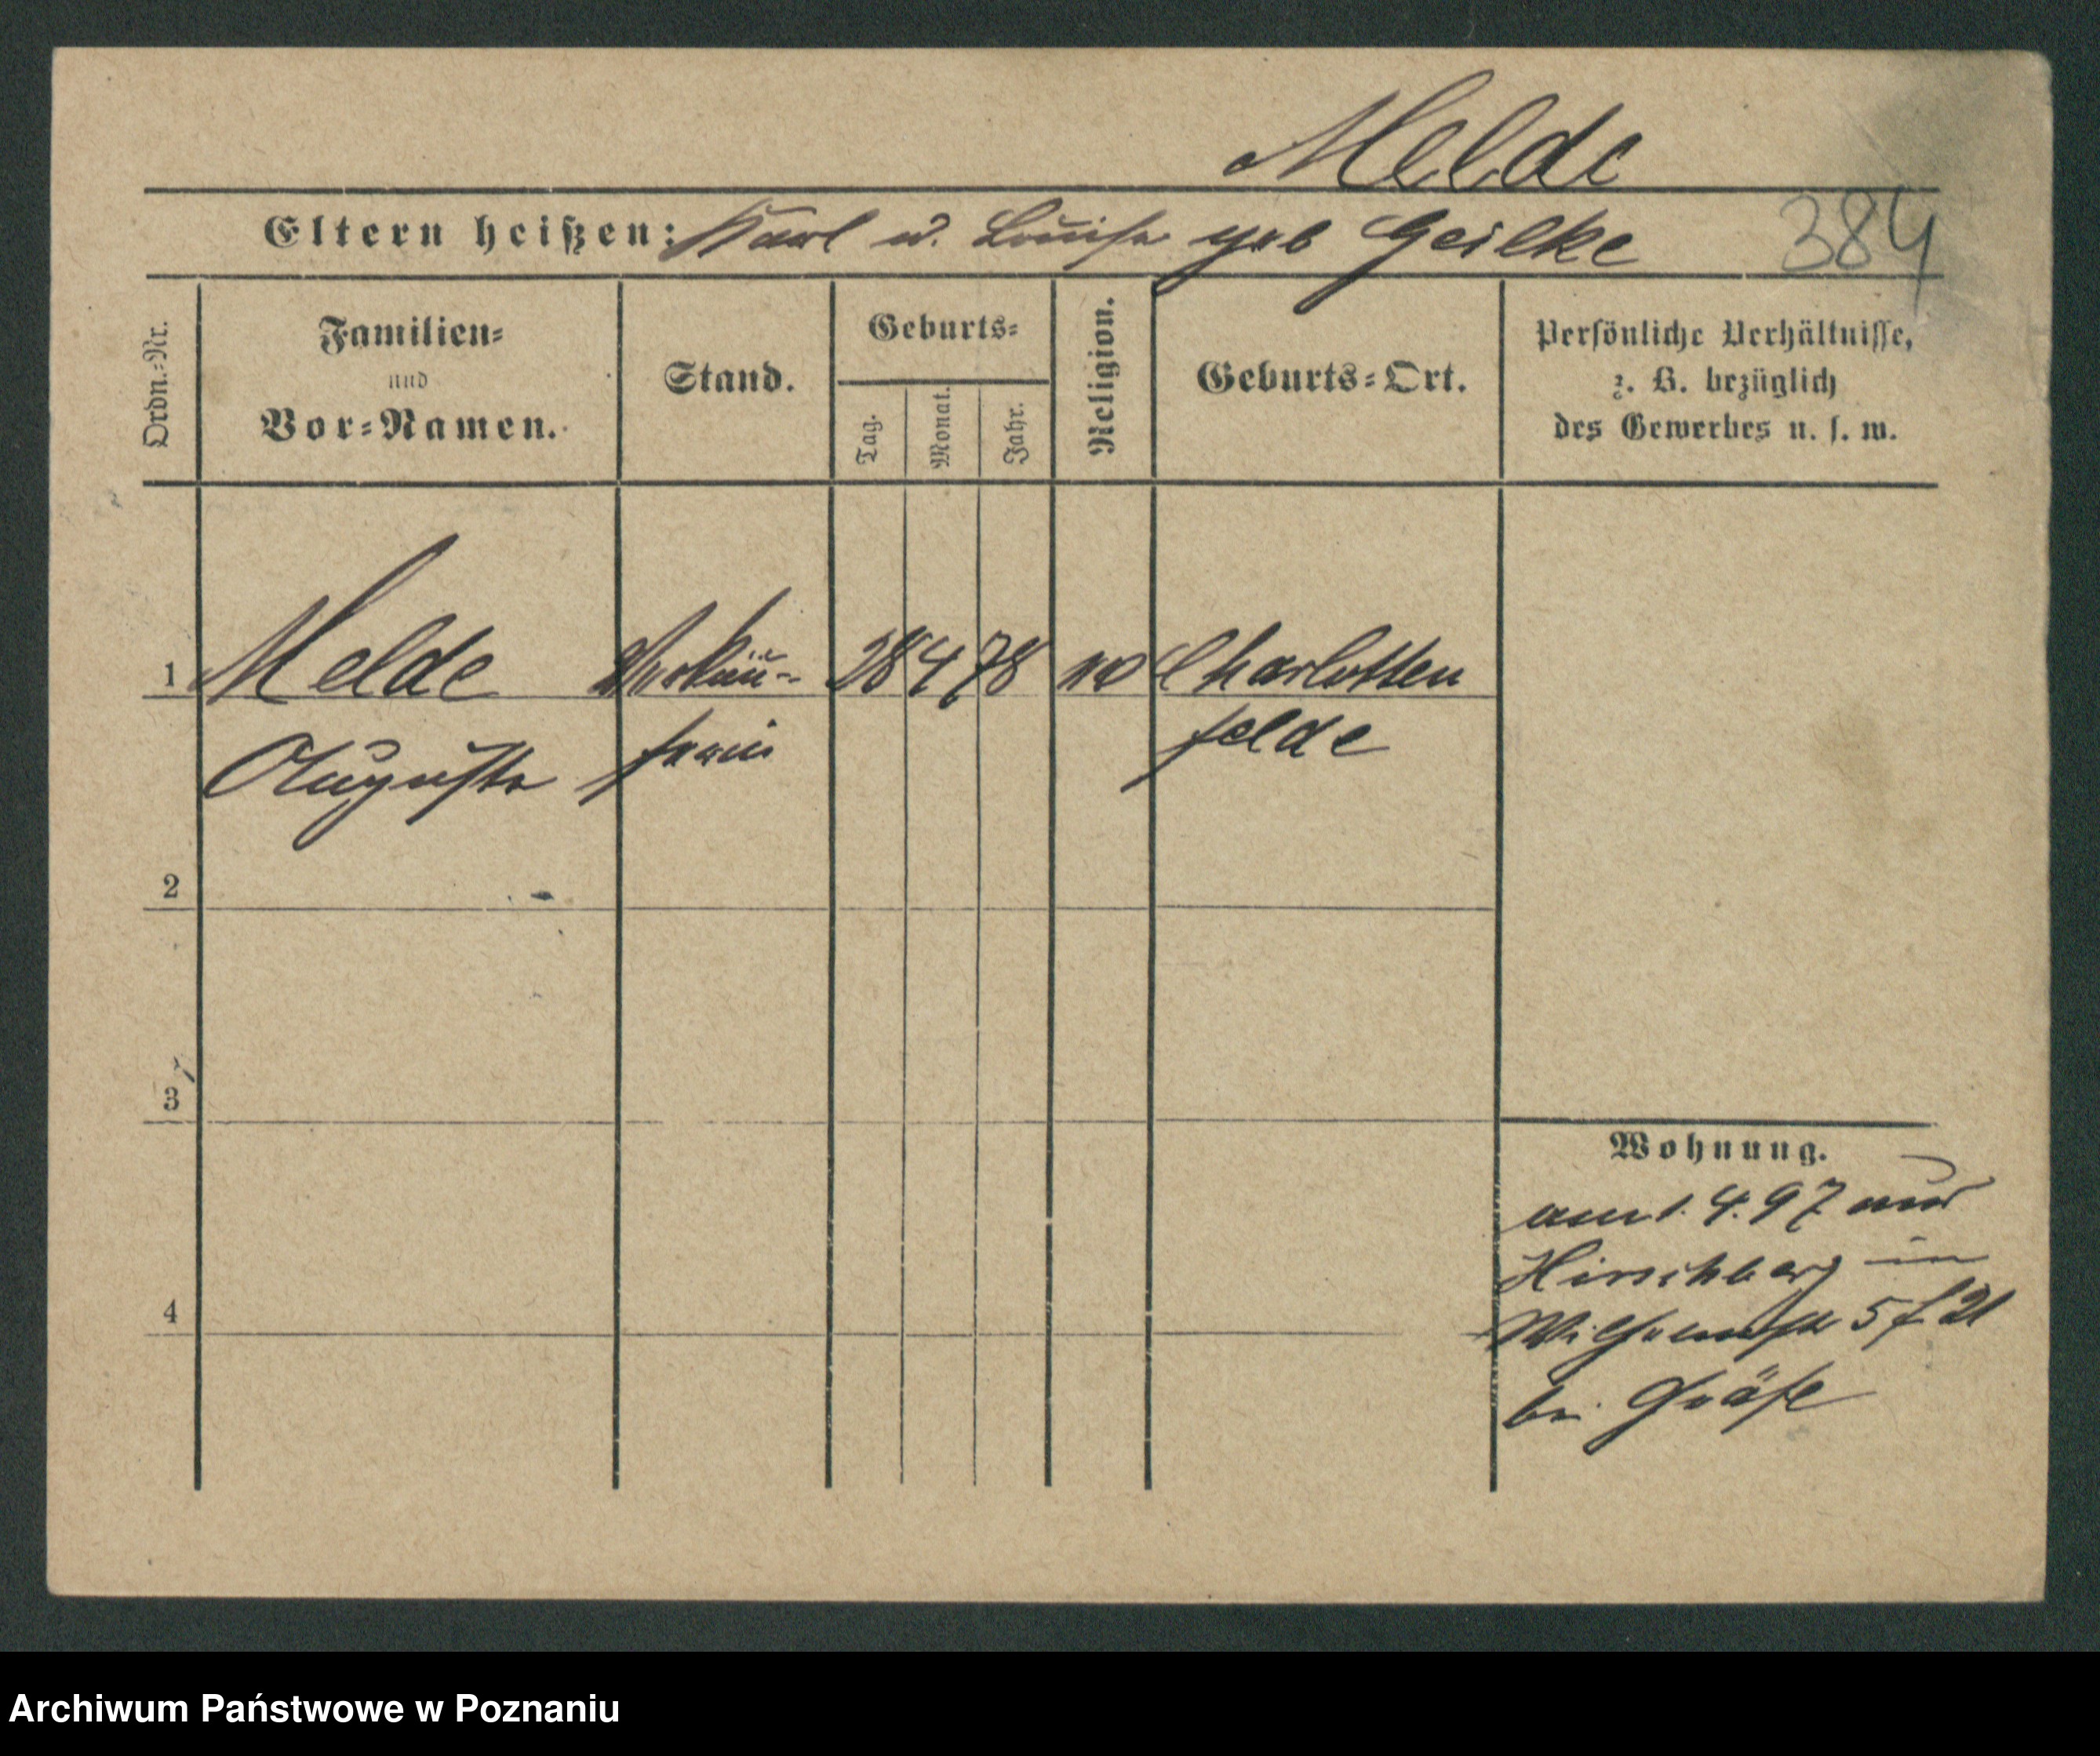 Melde
Eltern heißen: Karl u. Louise geb Geilke
384
Ordn.-Nr.
Familien-
und
Vor-Namen.
Stand.
Geburts-
Tag.
Monat.
Jahr.
Religion.
Geburts-Ort.
Persönliche Verhältnisse,
z. B. bezüglich
des Gewerbes u. s. w.
1
Melde
Verkäu-
28 4 78
Charlotten
Auguste
ferin
felde
2
3
4
Wohnung.
am 1. 4. 97 aus
Hirschberg in
Wilhelmstr 5
bei Gräfe
Archiwum Państwowe w Poznaniu